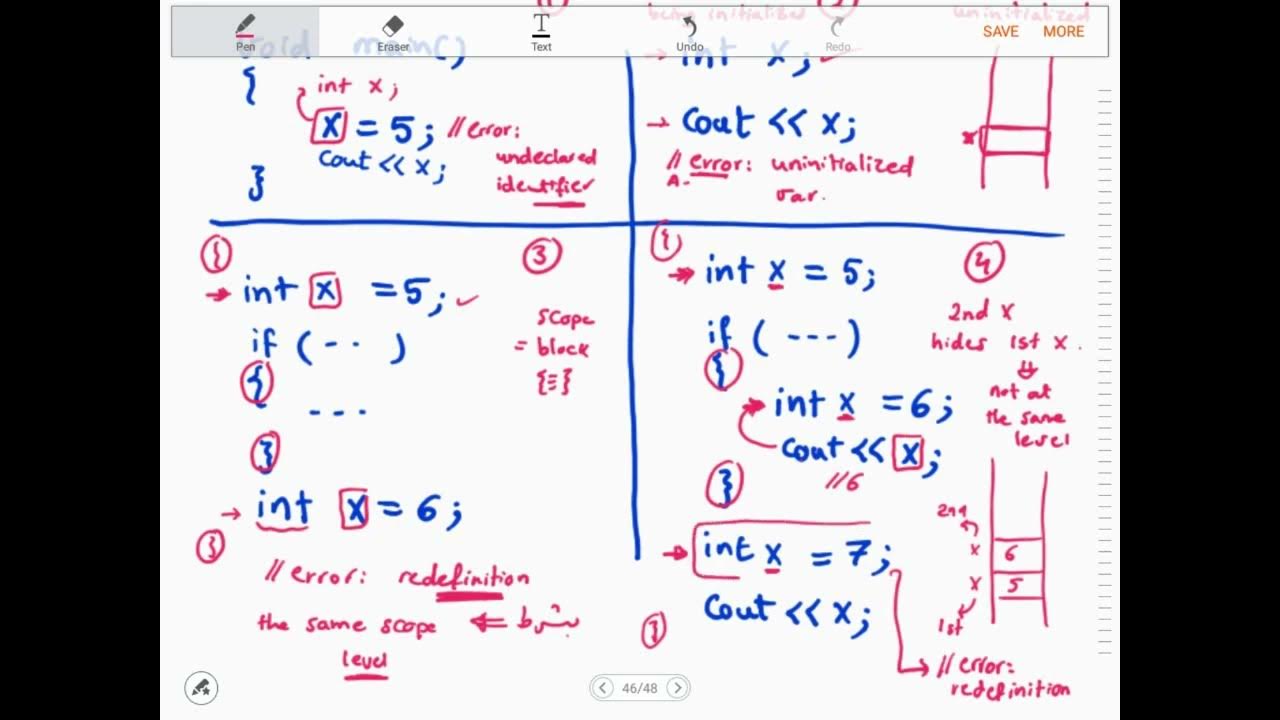 Pen
Eraser
Text
Undo
Redo
SAVE
MORE
void main()
{
int x;
x = 5; // error:
undeclared
identifier
cout << x;
}
being initialized
uninitialized
int x;
cout << x;
// error: uninitialized
var.
x
{
3
int x = 5;
if ( -- )
{
---
}
scope
= block
{≡}
int x = 6;
}
// error: redefinition
the same scope ⇐ بشرط
level
{
4
int x = 5;
if ( --- )
{
int x = 6;
cout << x;
// 6
}
int x = 7;
cout << x;
}
2nd x
hides 1st x.
⇓
not at
the same
level
2nd
x 6
x 5
1st
// error:
redefinition
46/48